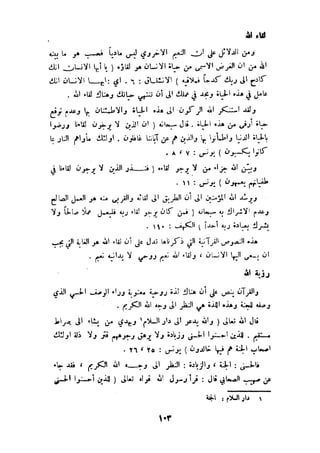 لقاء الله
ومن الدلائل على أن النعيم الأخروي ليس مادياً فحسب هو ما يبينه
الله من أن الأرض ليس حياة الإنسان هو لقاؤه ( يا أيها الإنسان إنك
كادح إلى ربك كدحاً فملاقيه ) [ الانشقاق : ٦ . أي : يا أيها الإنسان إنك
عامل في هذه الحياة ومجد في عملك إلى أن تنتهي حياتك وهناك لقاء الله .
ولقد استنكر الله الركون إلى هذه الحياة والاطمئنان بها وعدم توقع
حياة أرقى من هذه الحياة . قال سبحانه ( إن الذين لا يرجون لقاءنا ورضوا
بالحياة الدنيا واطمأنوا بها والذين هم عن آياتنا غافلون . أولئك مأواهم النار بما
كانوا يكسبون ) يونس : ٧ ، ٨ .
وبين الله جزاء من لا يرجو لقاءه ( فنذر الذين لا يرجون لقاءنا في
طغيانهم يعمهون ) يونس : ١١ .
ويرشد الله المؤمنين إلى أن الطريق إلى لقائه والقربى منه هو العمل الصالح
وعدم الإشراك به سبحانه ( فمن كان يرجو لقاء ربه فليعمل عملاً صالحاً ولا
يشرك بعبادة ربه أحداً ) الكهف : ١١٠ .
هذه النصوص القرآنية التي ذكرناها تدل على أن لقاء الله هو الغاية التي يجب
أن يسعى إليها الإنسان ، ولقاء الله نعيم روحي لا يدانيه نعيم .
رؤية الله
والقرآن ينص على أن هناك لذة روحية ومعنوية وراء الوصف الحسي الذي
وصف وهذه اللذة هي النظر إلى وجه الله الكريم .
قال الله تعالى ( والله يدعو إلى دار السلام١ ويهدي من يشاء إلى صراط
مستقيم . للذين أحسنوا الحسنى وزيادة ولا يرهق وجوههم قتر ولا ذلة أولئك
أصحاب الجنة هم فيها خالدون ) يونس : ٢٥ ، ٢٦ .
فالحسنى : الجنة ، والزيادة : النظر إلى وجه الله الكريم ، فقد جاء
عن صهيب الصحابي قال : قرأ رسول الله قوله تعالى ( للذين أحسنوا الحسنى
١ دار السلام : الجنة
١٠٣